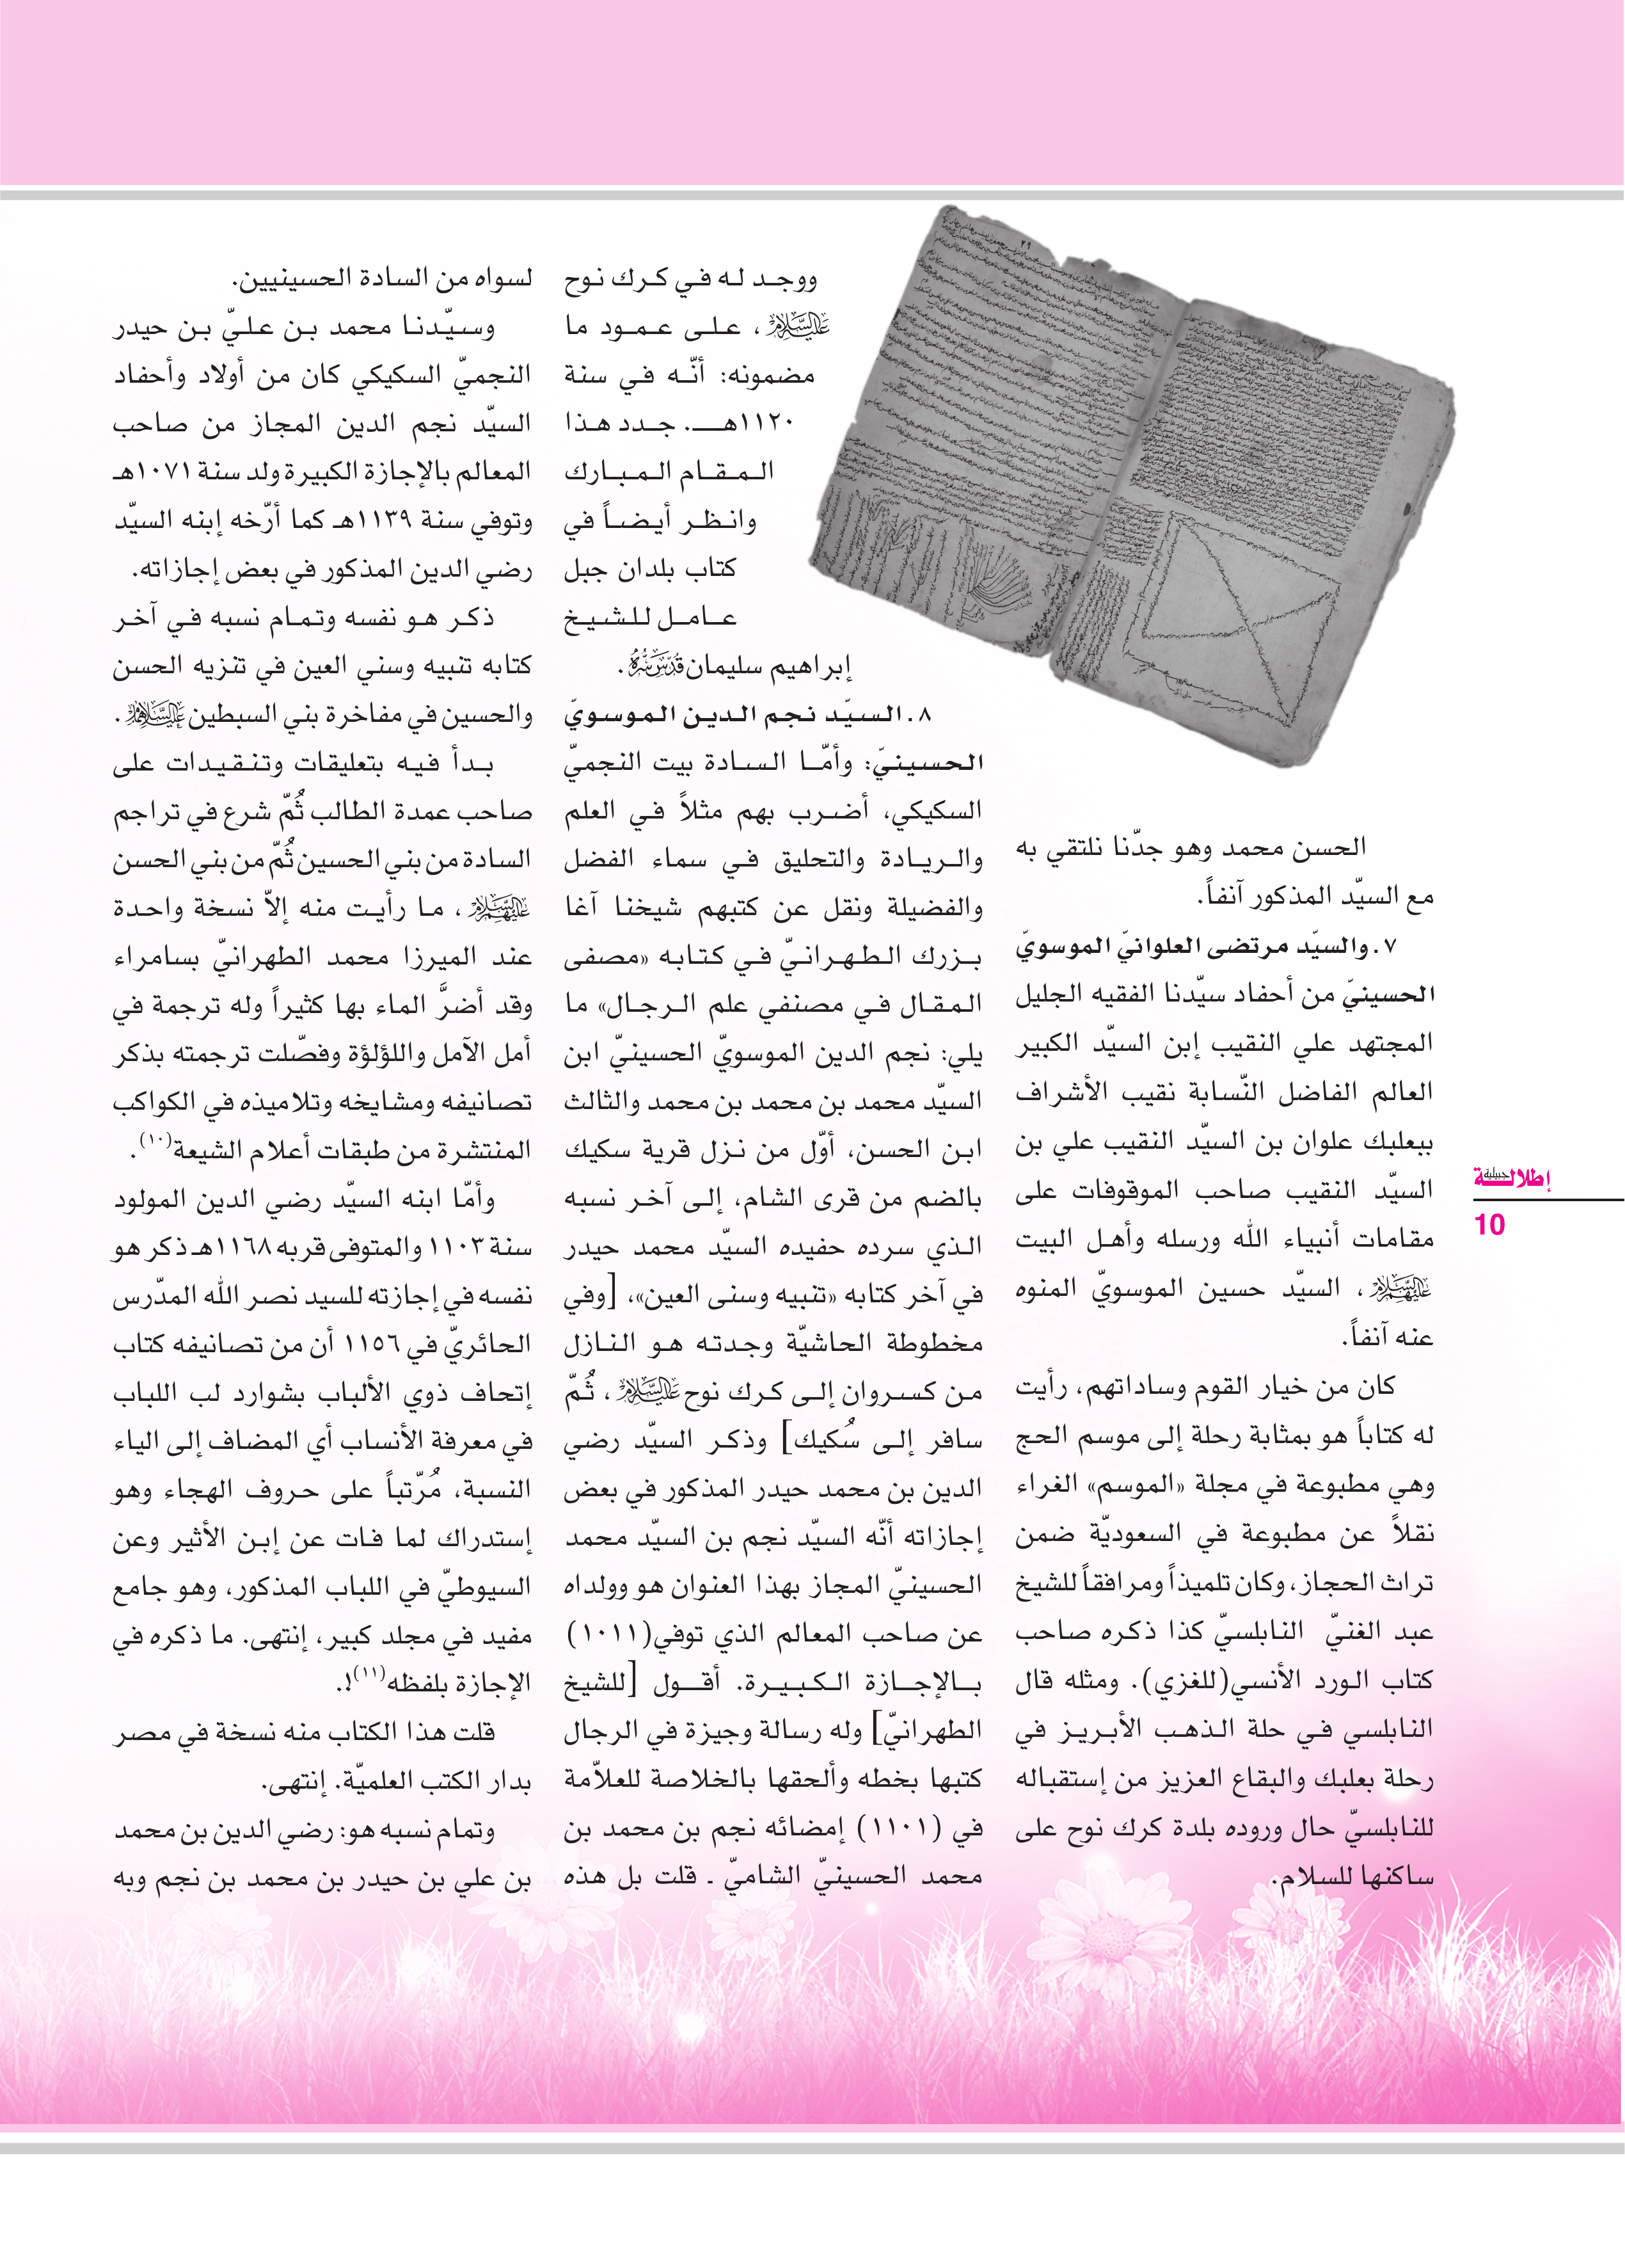 الحسن محمد وهو جدّنا نلتقي به
مع السيّد المذكور آنفاً.
٧. والسيّد مرتضى العلوانيّ الموسويّ
الحسينيّ من أحفاد سيّدنا الفقيه الجليل
المجتهد علي النقيب إبن السيّد الكبير
العالم الفاضل النّسابة نقيب الأشراف
ببعلبك علوان بن السيّد النقيب علي بن
السيّد النقيب صاحب الموقوفات على
مقامات أنبياء الله ورسله وأهل البيت
عليهم السلام، السيّد حسين الموسويّ المنوه
عنه آنفاً.
كان من خيار القوم وساداتهم، رأيت
له كتاباً هو بمثابة رحلة إلى موسم الحج
وهي مطبوعة في مجلة «الموسم» الغراء
نقلاً عن مطبوعة في السعوديّة ضمن
تراث الحجاز، وكان تلميذاً ومرافقاً للشيخ
عبد الغنيّ النابلسيّ كذا ذكره صاحب
كتاب الورد الأنسي(للغزي). ومثله قال
النابلسي في حلة الذهب الأبريز في
رحلة بعلبك والبقاع العزيز من إستقباله
للنابلسيّ حال وروده بلدة كرك نوح على
ساكنها للسلام.
ووجد له في كرك نوح
عليه السلام، على عمود ما
مضمونه: أنّه في سنة
١١٢٠هـ. جدد هذا
المقام المبارك
وانظر أيضاً في
كتاب بلدان جبل
عامل للشيخ
إبراهيم سليمان قدس سره.
٨. السيّد نجم الدين الموسويّ
الحسينيّ: وأمّا السادة بيت النجميّ
السكيكي، أضرب بهم مثلاً في العلم
والريادة والتحليق في سماء الفضل
والفضيلة ونقل عن كتبهم شيخنا آغا
بزرك الطهرانيّ في كتابه «مصفى
المقال في مصنفي علم الرجال» ما
يلي: نجم الدين الموسويّ الحسينيّ ابن
السيّد محمد بن محمد بن محمد والثالث
ابن الحسن، أوّل من نزل قرية سكيك
بالضم من قرى الشام، إلى آخر نسبه
الذي سرده حفيده السيّد محمد حيدر
في آخر كتابه «تنبيه وسنى العين»، [وفي
مخطوطة الحاشيّة وجدته هو النازل
من كسروان إلى كرك نوح عليه السلام، ثُمّ
سافر إلى سُكيك] وذكر السيّد رضي
الدين بن محمد حيدر المذكور في بعض
إجازاته أنّه السيّد نجم بن السيّد محمد
الحسينيّ المجاز بهذا العنوان هو وولداه
عن صاحب المعالم الذي توفي(١٠١١)
بالإجازة الكبيرة. أقول [للشيخ
الطهرانيّ] وله رسالة وجيزة في الرجال
كتبها بخطه وألحقها بالخلاصة للعلاّمة
في (١١٠١) إمضائه نجم بن محمد بن
محمد الحسينيّ الشاميّ ـ قلت بل هذه
لسواه من السادة الحسينيين.
وسيّدنا محمد بن عليّ بن حيدر
النجميّ السكيكي كان من أولاد وأحفاد
السيّد نجم الدين المجاز من صاحب
المعالم بالإجازة الكبيرة ولد سنة ١٠٧١هـ
وتوفي سنة ١١٣٩هـ كما أرّخه إبنه السيّد
رضي الدين المذكور في بعض إجازاته.
ذكر هو نفسه وتمام نسبه في آخر
كتابه تنبيه وسني العين في تنزيه الحسن
والحسين في مفاخرة بني السبطين عليهما السلام.
بدأ فيه بتعليقات وتنقيدات على
صاحب عمدة الطالب ثُمّ شرع في تراجم
السادة من بني الحسين ثُمّ من بني الحسن
عليهم السلام، ما رأيت منه إلاّ نسخة واحدة
عند الميرزا محمد الطهرانيّ بسامراء
وقد أضرَّ الماء بها كثيراً وله ترجمة في
أمل الآمل واللؤلؤة وفصّلت ترجمته بذكر
تصانيفه ومشايخه وتلاميذه في الكواكب
المنتشرة من طبقات أعلام الشيعة(١٠).
وأمّا ابنه السيّد رضي الدين المولود
سنة ١١٠٣ والمتوفى قربه ١١٦٨هـ ذكر هو
نفسه في إجازته للسيد نصر الله المدّرس
الحائريّ في ١١٥٦ أن من تصانيفه كتاب
إتحاف ذوي الألباب بشوارد لب اللباب
في معرفة الأنساب أي المضاف إلى الياء
النسبة، مُرّتباً على حروف الهجاء وهو
إستدراك لما فات عن إبن الأثير وعن
السيوطيّ في اللباب المذكور، وهو جامع
مفيد في مجلد كبير، إنتهى. ما ذكره في
الإجازة بلفظه(١١)!.
قلت هذا الكتاب منه نسخة في مصر
بدار الكتب العلميّة. إنتهى.
وتمام نسبه هو: رضي الدين بن محمد
بن علي بن حيدر بن محمد بن نجم وبه
إطلالة جبيلية
10